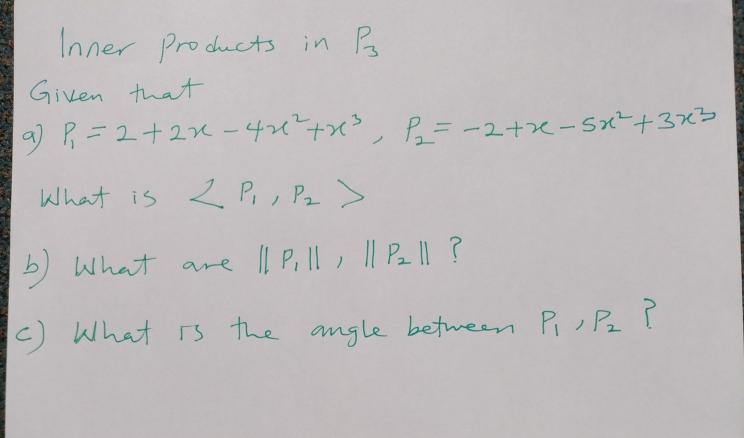 Inner products in P₃
Given that
a) P₁ = 2 + 2x - 4x² + x³, P₂ = -2 + x - 5x² + 3x³
What is < P₁, P₂ >
b) What are ||P₁||, ||P₂|| ?
c) What is the angle between P₁, P₂ ?